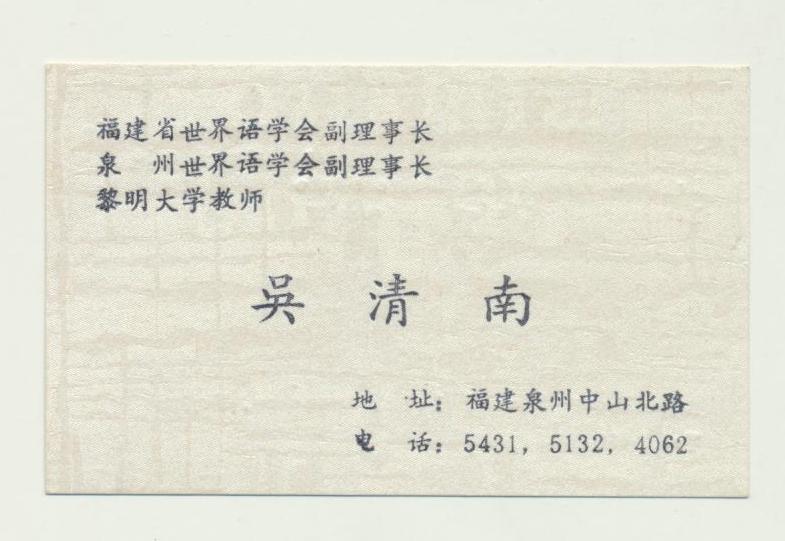 福建省世界语学会副理事长
泉　州世界语学会副理事长
黎明大学教师
吳清南
地　址：福建泉州中山北路
电　话：5431，5132，4062